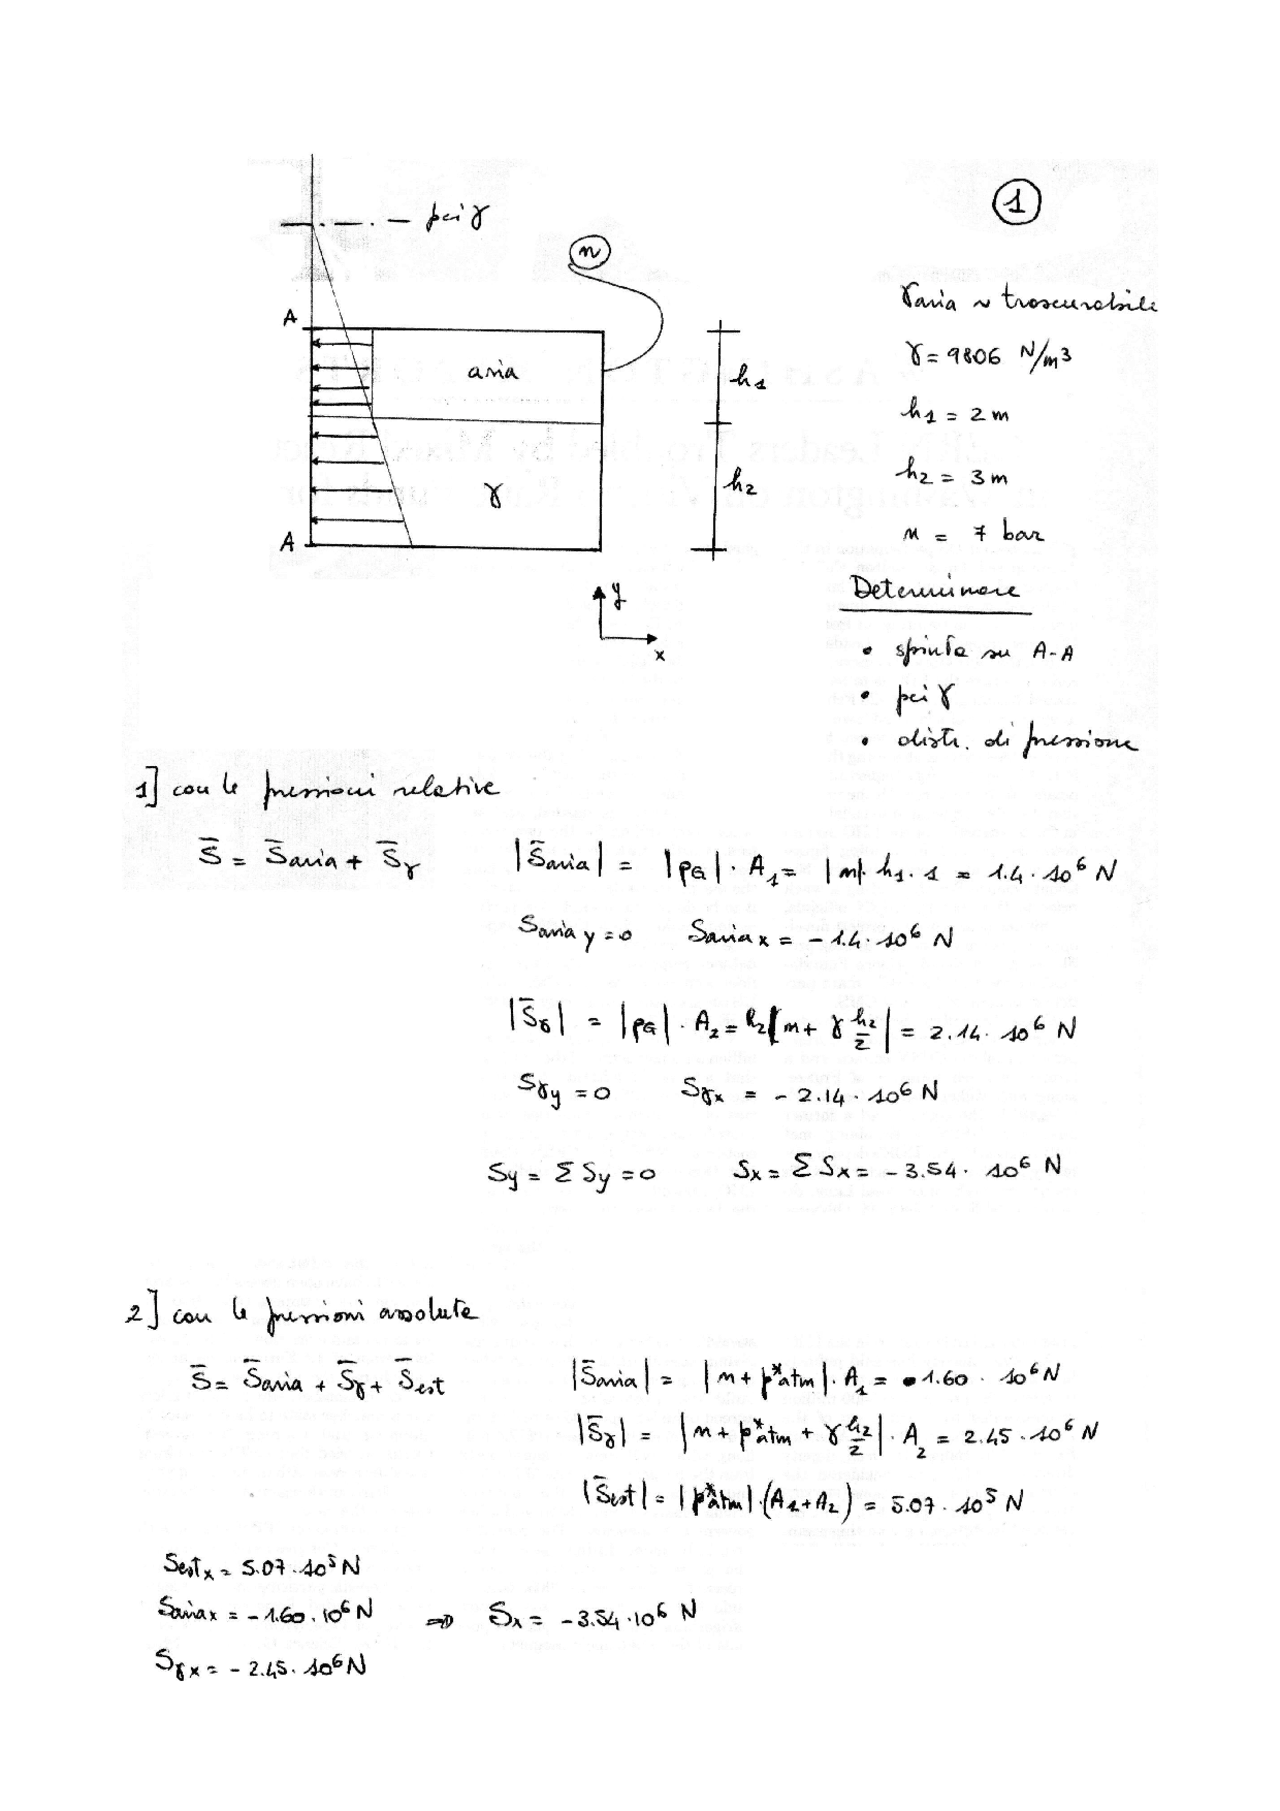 1
pci γ
n
γaria ~ trascurabile
A
aria
h1
γ = 9806 N/m3
h1 = 2 m
γ
h2
h2 = 3 m
A
n = 7 bar
y
x
Determinare
• spinta su A-A
• pci γ
• distr. di pressione
1] con le pressioni relative
S̄ = S̄aria + S̄γ
|S̄aria| = |pG| · A1 = |n| · h1 · 1 = 1.4 · 10⁶ N
Saria y = 0 Saria x = - 1.4 · 10⁶ N
|S̄γ| = |pG| · A2 = h2 |n + γ h2/2| = 2.14 · 10⁶ N
Sγy = 0 Sγx = - 2.14 · 10⁶ N
Sy = Σ Sy = 0 Sx = Σ Sx = - 3.54 · 10⁶ N
2] con le pressioni assolute
S̄ = S̄aria + S̄γ + S̄est
|S̄aria| = |n + p*atm| · A1 = 1.60 · 10⁶ N
|S̄γ| = |n + p*atm + γ h2/2| · A2 = 2.45 · 10⁶ N
|S̄est| = |p*atm| · (A1 + A2) = 5.07 · 10⁵ N
Sest x = 5.07 · 10⁵ N
Saria x = - 1.60 · 10⁶ N ⇒ Sx = -3.54 · 10⁶ N
Sγ x = - 2.45 · 10⁶ N